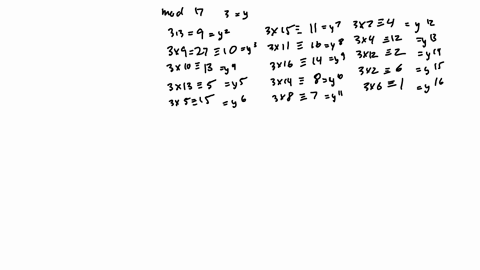 mod 17 3 = y
3×3 = 9 = y²
3×9 = 27 ≡ 10 = y³
3×10 ≡ 13 = y4
3×13 ≡ 5 = y5
3×5 ≡ 15 = y6
3×15 ≡ 11 = y7
3×11 ≡ 16 = y8
3×16 ≡ 14 = y9
3×14 ≡ 8 = y10
3×8 ≡ 7 = y11
3×7 ≡ 4 = y12
3×4 ≡ 12 = y13
3×12 ≡ 2 = y14
3×2 ≡ 6 = y15
3×6 ≡ 1 = y16